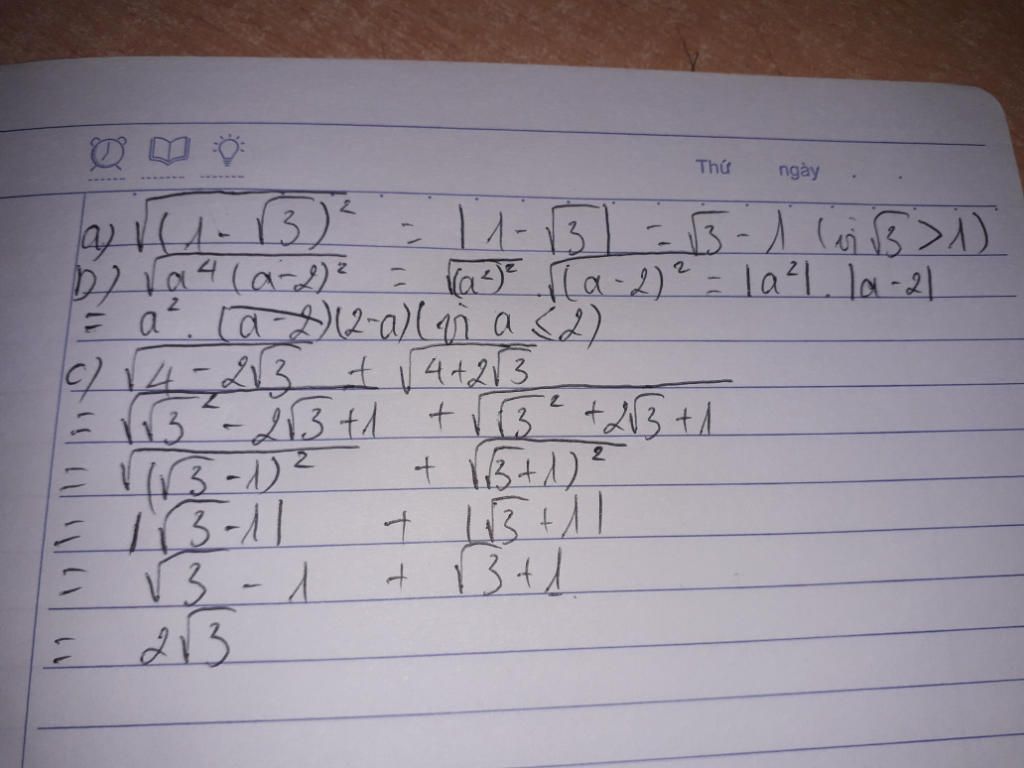 Thứ ngày . .
a) √(1-√3)² = |1-√3| = √3 - 1 (vì √3 > 1)
b) √a⁴(a-2)² = √(a²)² . √(a-2)² = |a²| . |a-2|
= a² . (a-2)(2-a) (vì a < 2)
c) √4-2√3 + √4+2√3
= √√3² - 2√3+1 + √√3² + 2√3+1
= √(√3-1)² + √√3+1)²
= |√3-1| + |√3+1|
= √3 - 1 + √3+1
= 2√3